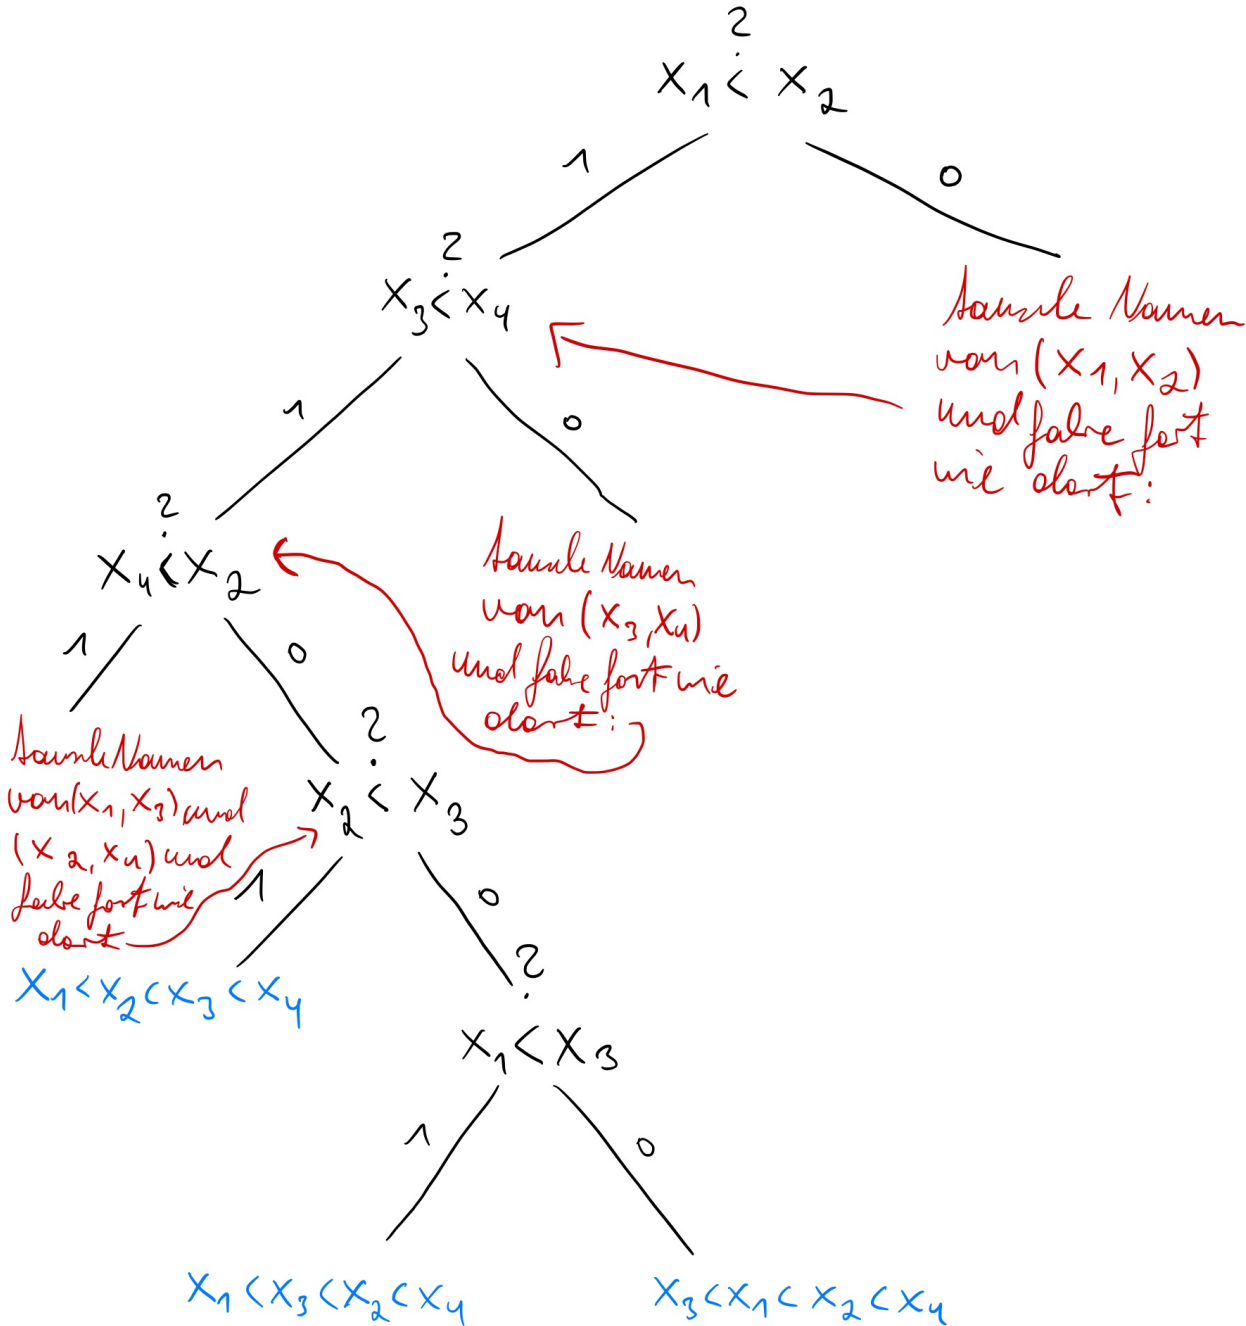 ?
x₁ < x₂
1
0
?
x₃ < x₄
tausche Namen
von (x₁, x₂)
und fahre fort
wie dort:
1
0
?
x₄ < x₂
tausche Namen
von (x₃, x₄)
und fahre fort wie
dort:
1
0
tausche Namen
von (x₁, x₃) und
(x₂, x₄) und
fahre fort wie
dort
?
x₂ < x₃
1
0
x₁ < x₂ < x₃ < x₄
?
x₁ < x₃
1
0
x₁ < x₃ < x₂ < x₄
x₃ < x₁ < x₂ < x₄